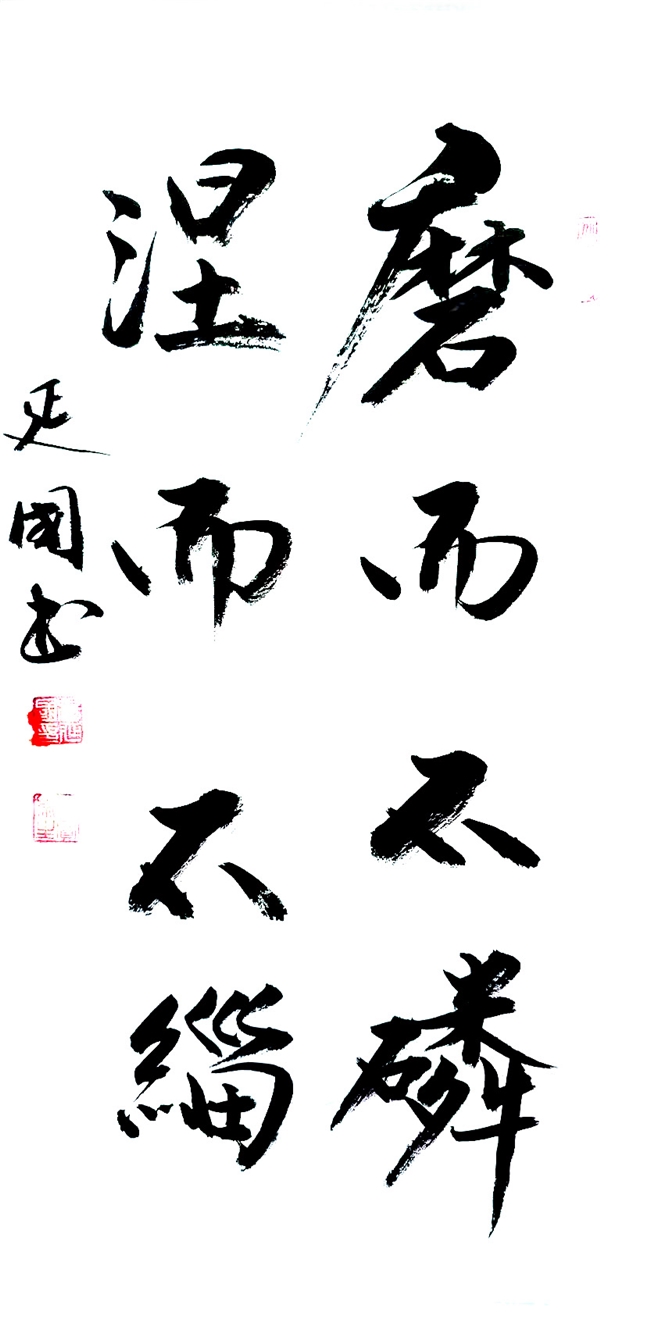 磨而不磷
涅而不緇
廷國书